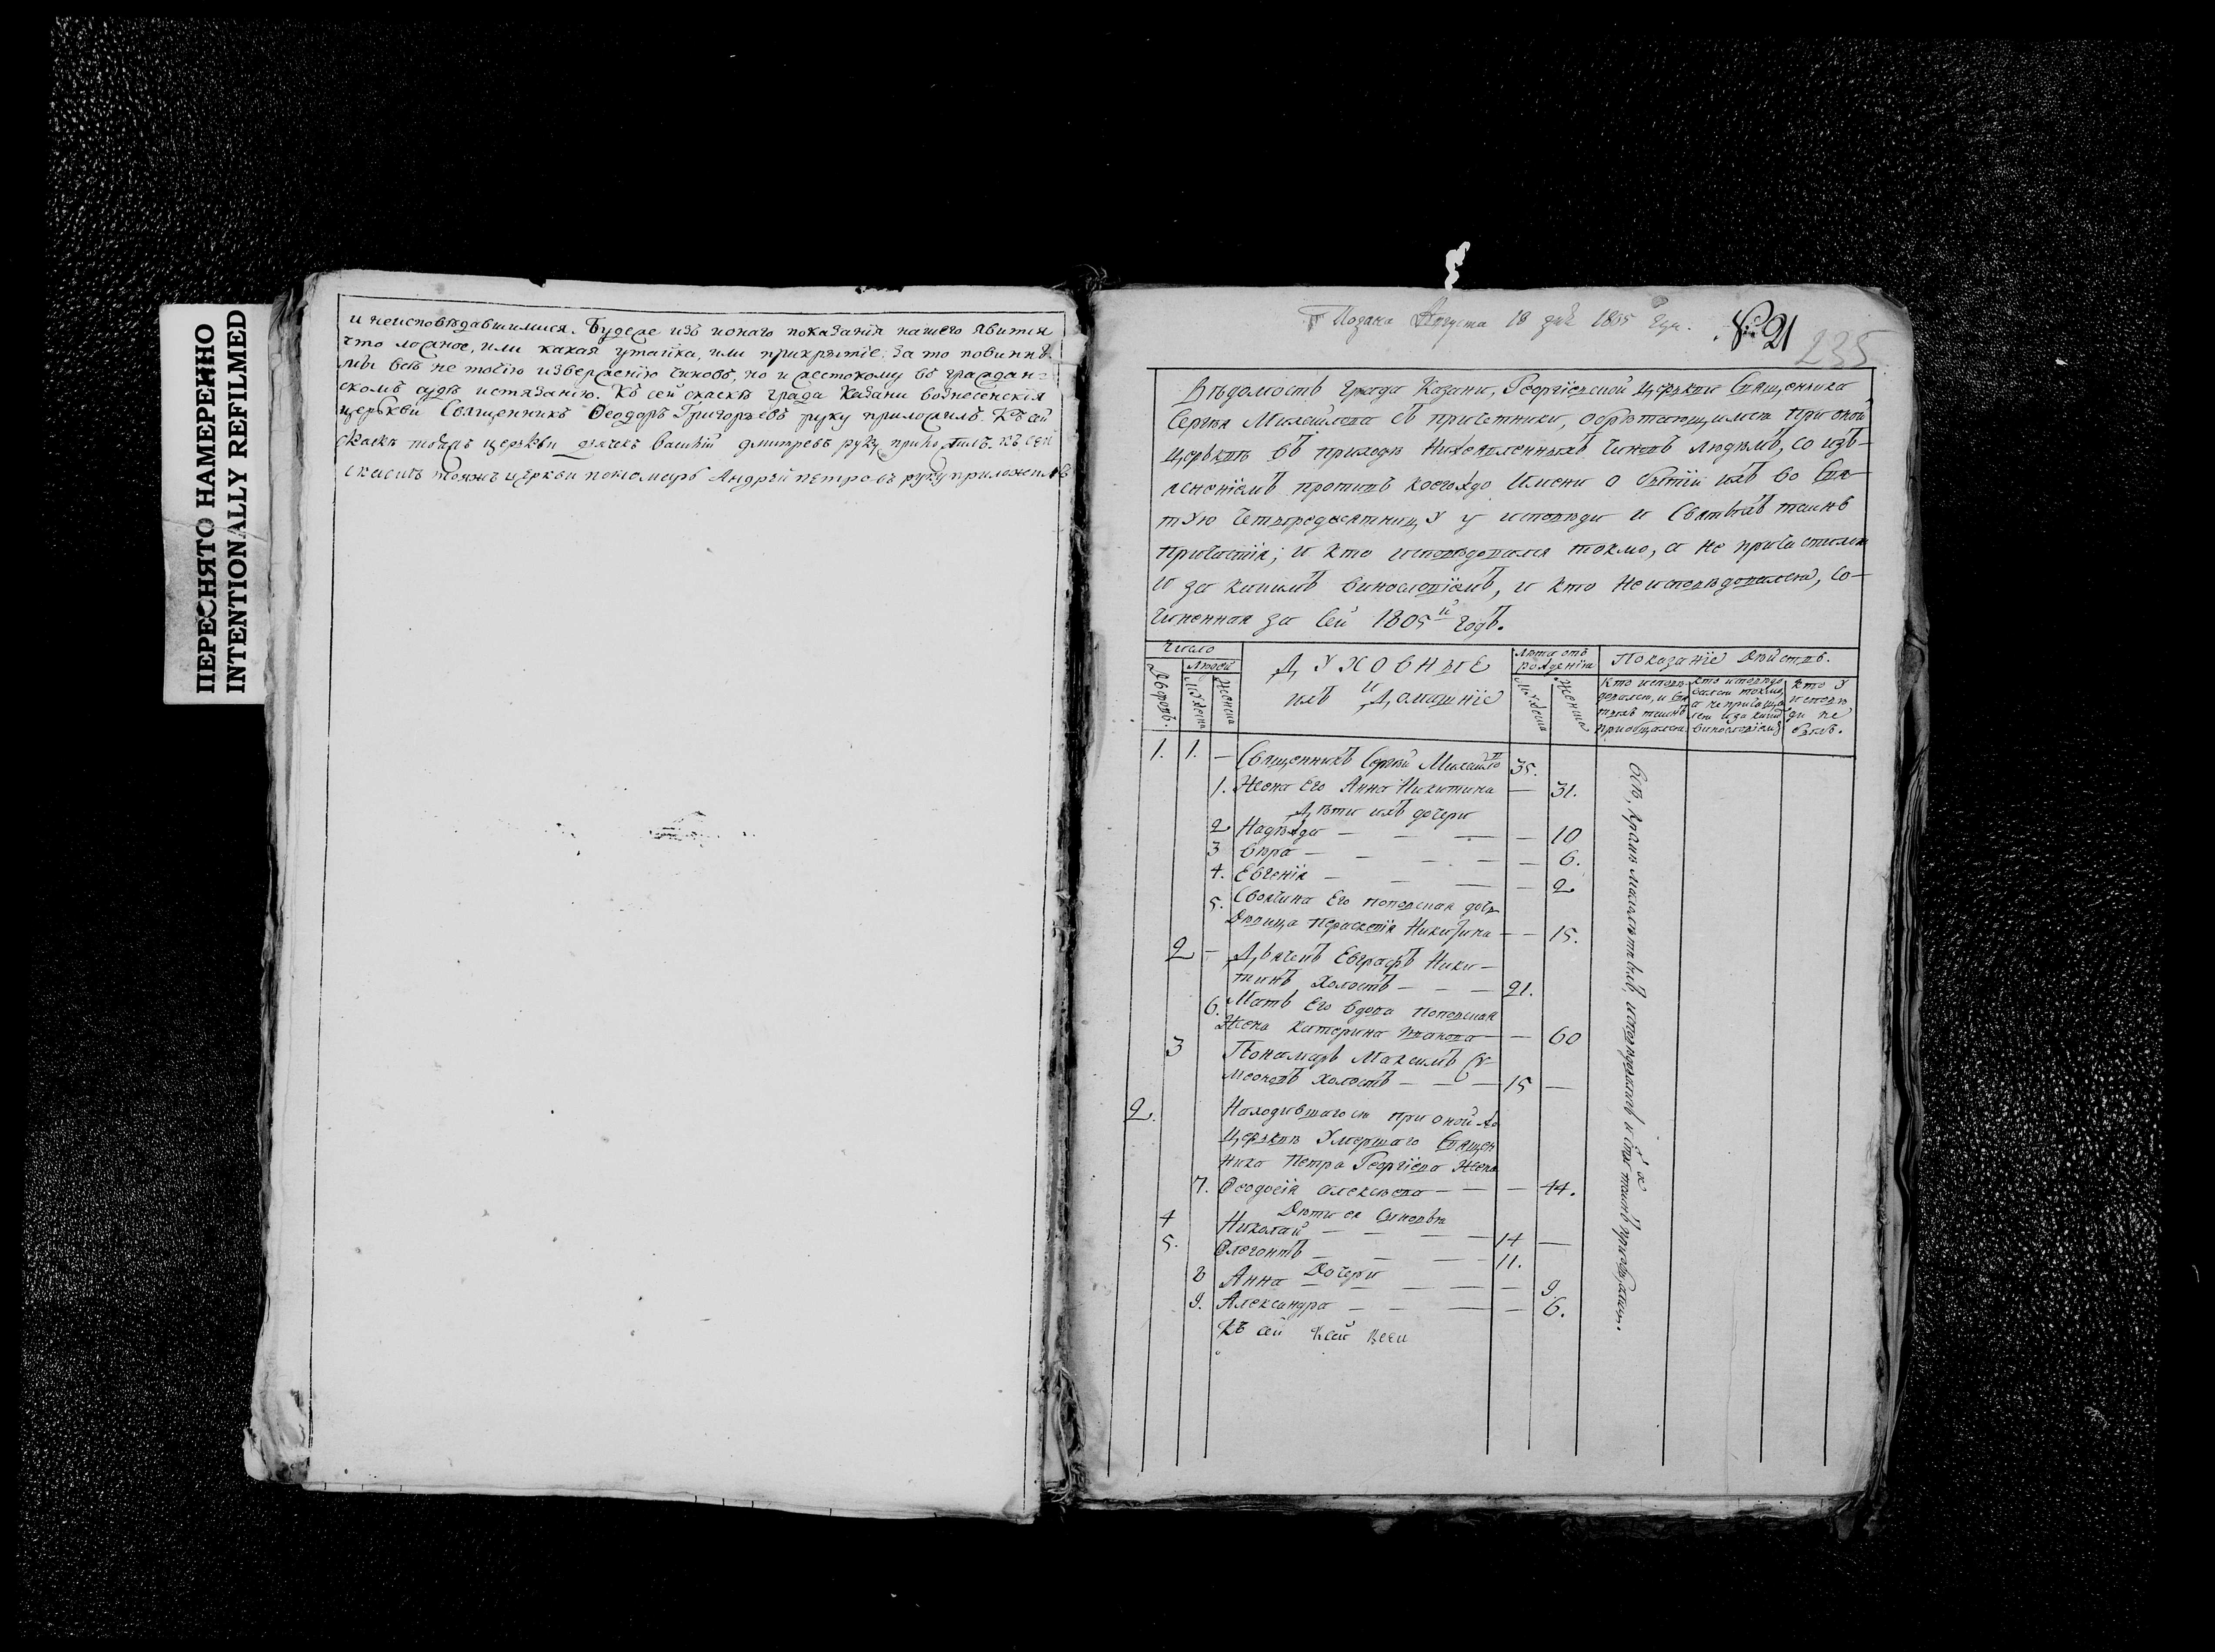 ПЕРЕСНЯТО НАМЕРЕННО
INTENTIONALLY REFILMED
и неисповѣдавшимися. Буде же изъ онаго показанія нашего явится
что ложное, или какая утайка, или прикрытіе. За то повинны
мы всѣ не точію изверженію чиновъ, но и жестокому въ граждан=
скомъ судѣ истязанію. Къ сей скаскѣ града Казани вознесенскія
церькви Священникъ Ѳеодоръ Григорьевъ руку приложилъ. Къ сей
скаскѣ тояжъ церькви дьячекъ Василій дмитревъ руку приложилъ. къ сей
скаскѣ тояжъ церкви пономарь Андрей петровъ руку приложилъ
Подана Августа 18 дня 1805 года.
№ 21
235
Вѣдомость града Казани, Георгіевской церькви Священника
Сергѣя Михайлова съ причетники, обрѣтающимся при оной
церьквѣ въ приходѣ нижеявленныхъ чиновъ людѣмъ, со изъ-
ясненіемъ противъ коегождо имени о бытіи ихъ во Свя-
тую четыредесятницу у исповѣди и Святыхъ таинъ
причастія; и кто исповѣдовался токмо, а не причастился
и за какимъ винословіемъ, и кто не исповѣдовался, со-
чиненная за сей 1805й годъ.
Число
Дворовъ.
Людей
Мужеска
Женска
Духовные
и
ихъ Домашніе
Лѣта отъ рожденія
Мужеска
Женска
Показаніе дѣйствъ.
Кто исповѣ-
довался, и Свя
тыхъ таинъ
пріобщался
кто исповѣдо
вался токмо,
а не пріобща
лся и за какимъ
винословіемъ
кто у
исповѣ
ди не
былъ.
1. 1. — Священникъ Сергѣй Михайловъ 35.
1. Жена Его Анна Никитина — 31.
Дѣти ихъ дочери
2 Надѣжда — — — — 10
3 Вѣра — — — — 6.
4. Евгенія — — — — 2
5. Своячина Его поповская дочь
Дѣвица Параскевія Никитина — — 15.
2 — Дьячекъ Евграфъ Ники-
тинъ холостъ — — — 21.
6. Мать Его вдова поповская
Жена Катерина Иванова — — 60
3 Пономарь Максимъ Си-
меоновъ холостъ — — — 15 —
2. Находившагося при оной же
церьквѣ умершаго Священ
ника Петра Георгіева жена
7. Ѳеодосія Алексѣева — — — 44.
Дѣти ея Сыновья
4 Николай — — — — 14 —
5. Флегонтъ — — — 11.
Дочери
8 Анна — — — — 9.
9. Александра — — — — 6.
Къ сей
Всѣ, кромѣ малолѣтныхъ, исповѣдовались и святыхъ таинъ пріобщались.